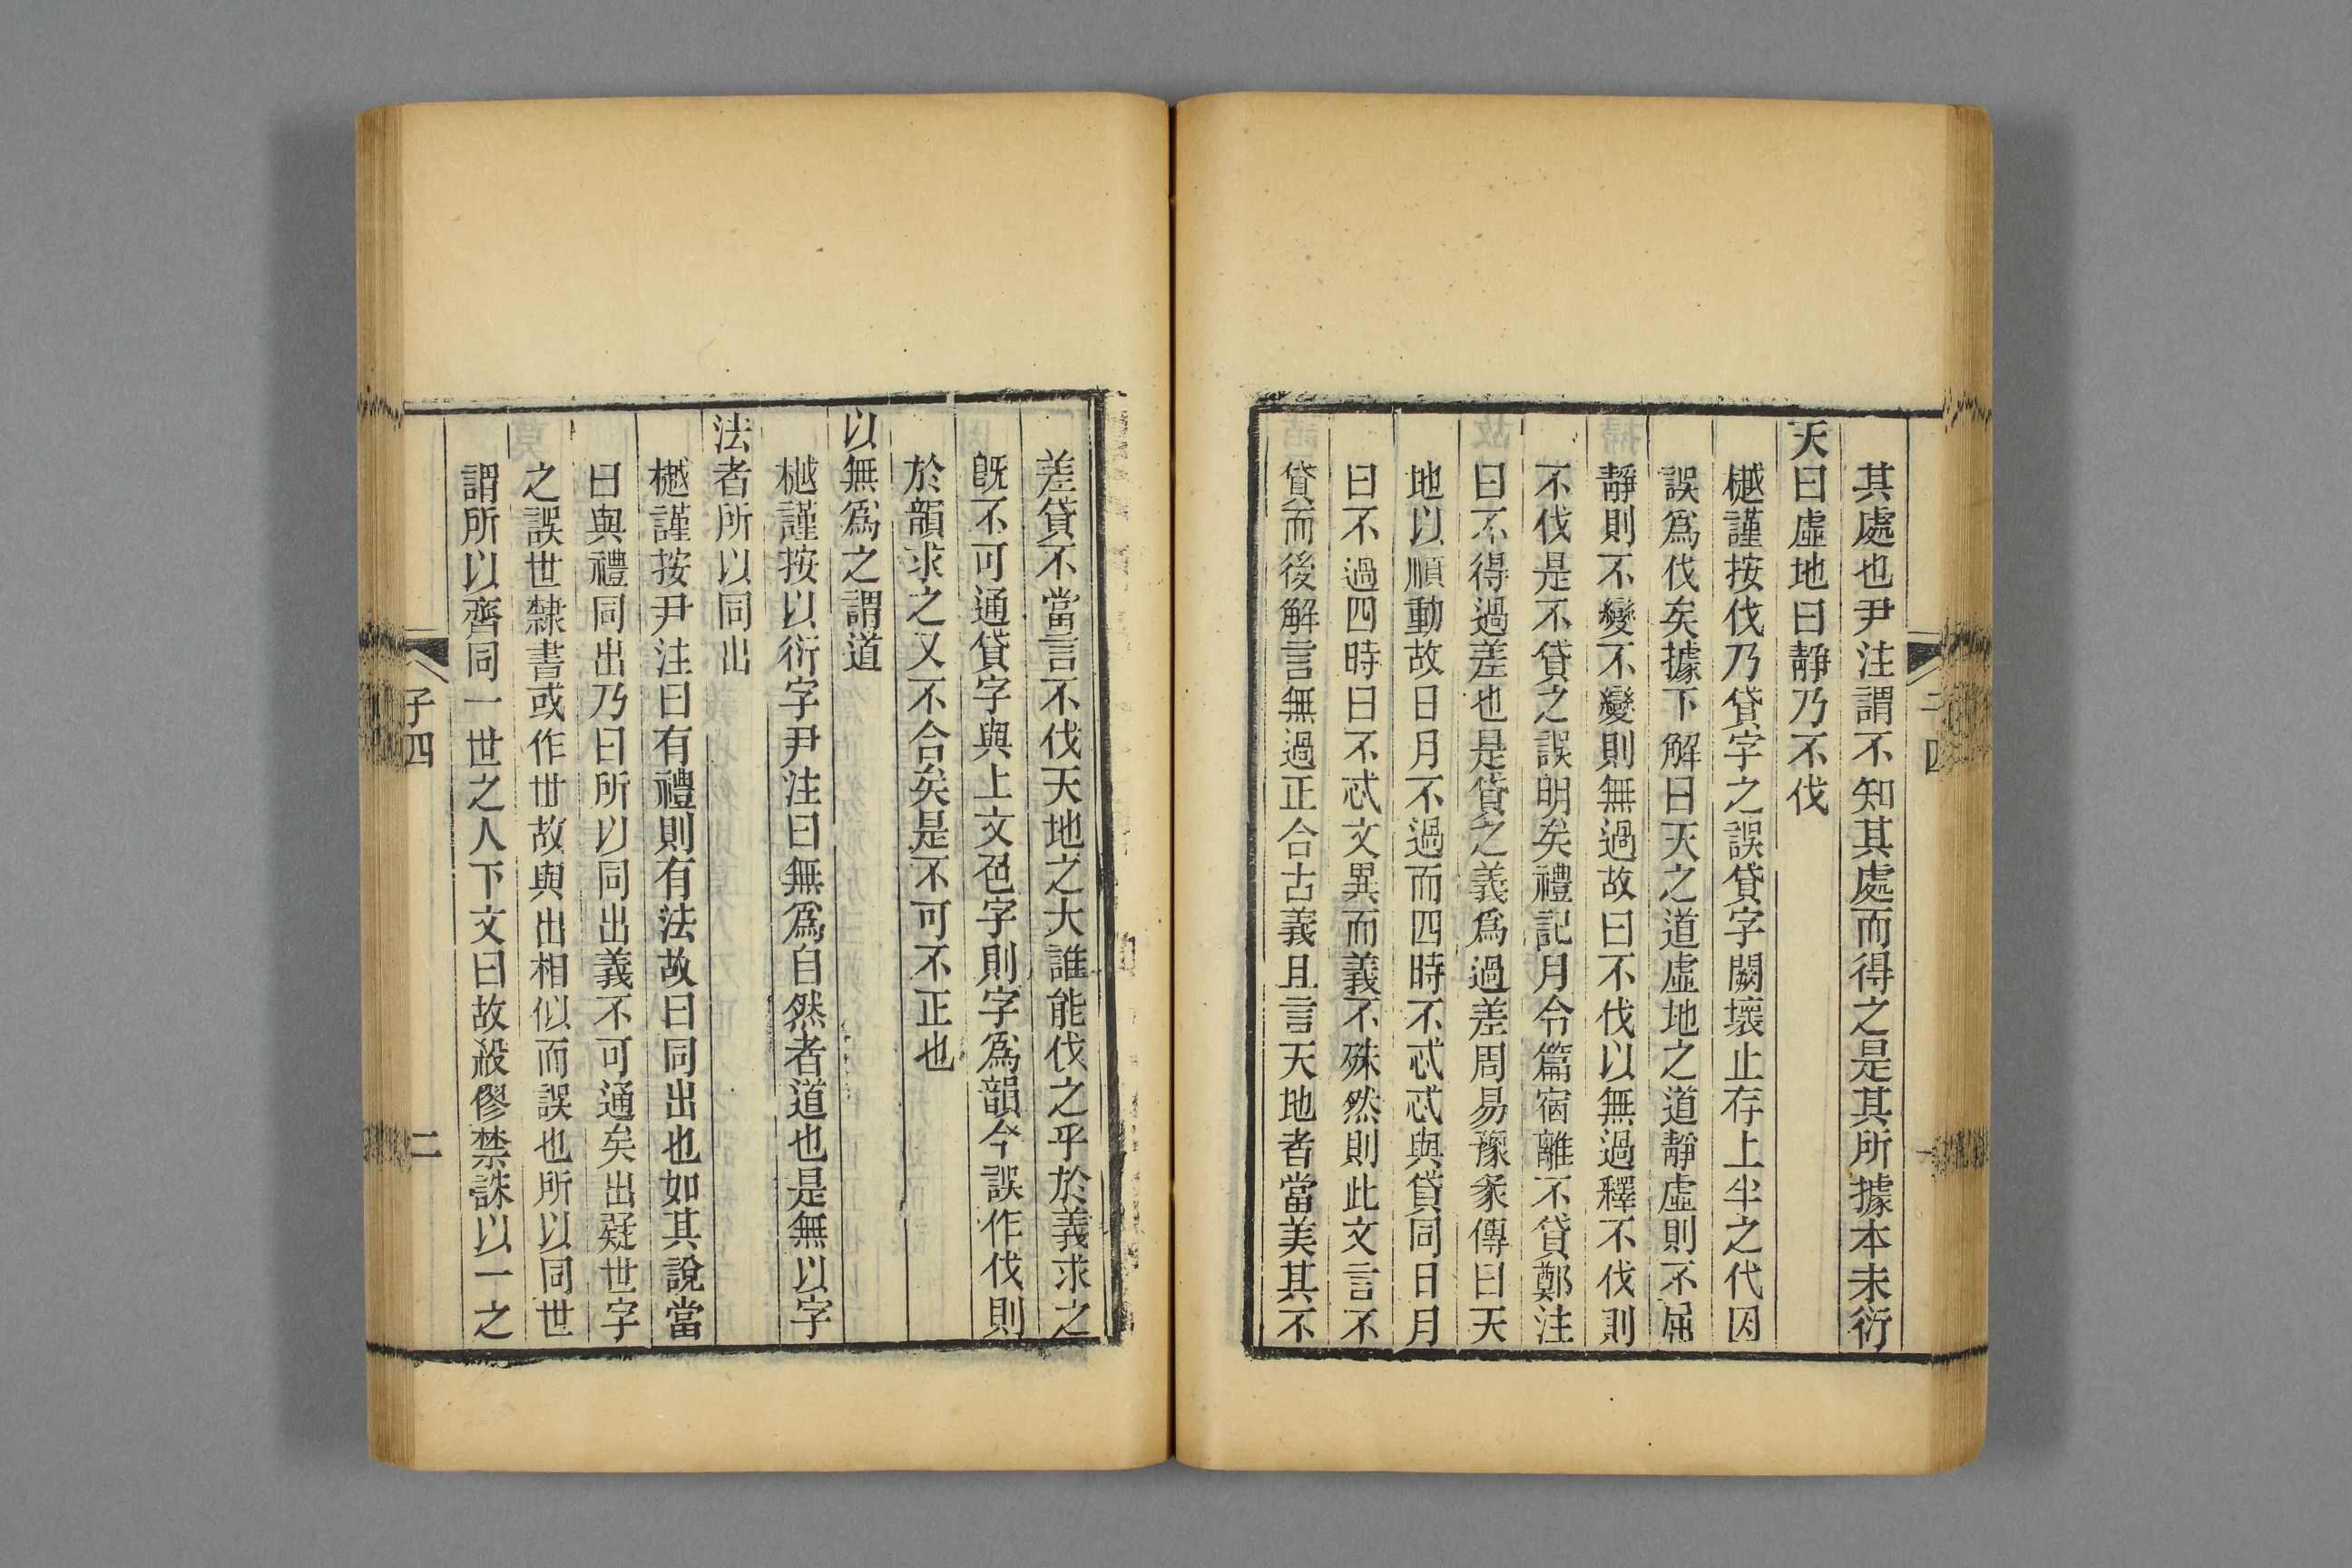 其處也尹注謂不知其處而得之是其所據本未衍
天曰虛地曰靜乃不伐
樾謹按伐乃貸字之誤貸字闕壞止存上半之代因
誤爲伐矣據下解曰天之道虛地之道靜虛則不屈
靜則不變不變則無過故曰不伐以無過釋不伐則
不伐是不貸之誤明矣禮記月令篇宿離不貸鄭注
曰不得過差也是貸之義爲過差周易豫彖傳曰天
地以順動故日月不過而四時不忒忒與貸同日月
曰不過四時曰不忒文異而義不殊然則此文言不
貸而後解言無過正合古義且言天地者當美其不
差貸不當言不伐天地之大誰能伐之乎於義求之
旣不可通貸字與上文色字則字爲韻今誤作伐則
於韻求之又不合矣是不可不正也
以無爲之謂道
樾謹按以衍字尹注曰無爲自然者道也是無以字
法者所以同出
樾謹按尹注曰有禮則有法故曰同出也如其說當
曰與禮同出乃曰所以同出義不可通矣出疑世字
之誤世隸書或作丗故與出相似而誤也所以同世
謂所以齊同一世之人下文曰故殺僇禁誅以一之
子四
二